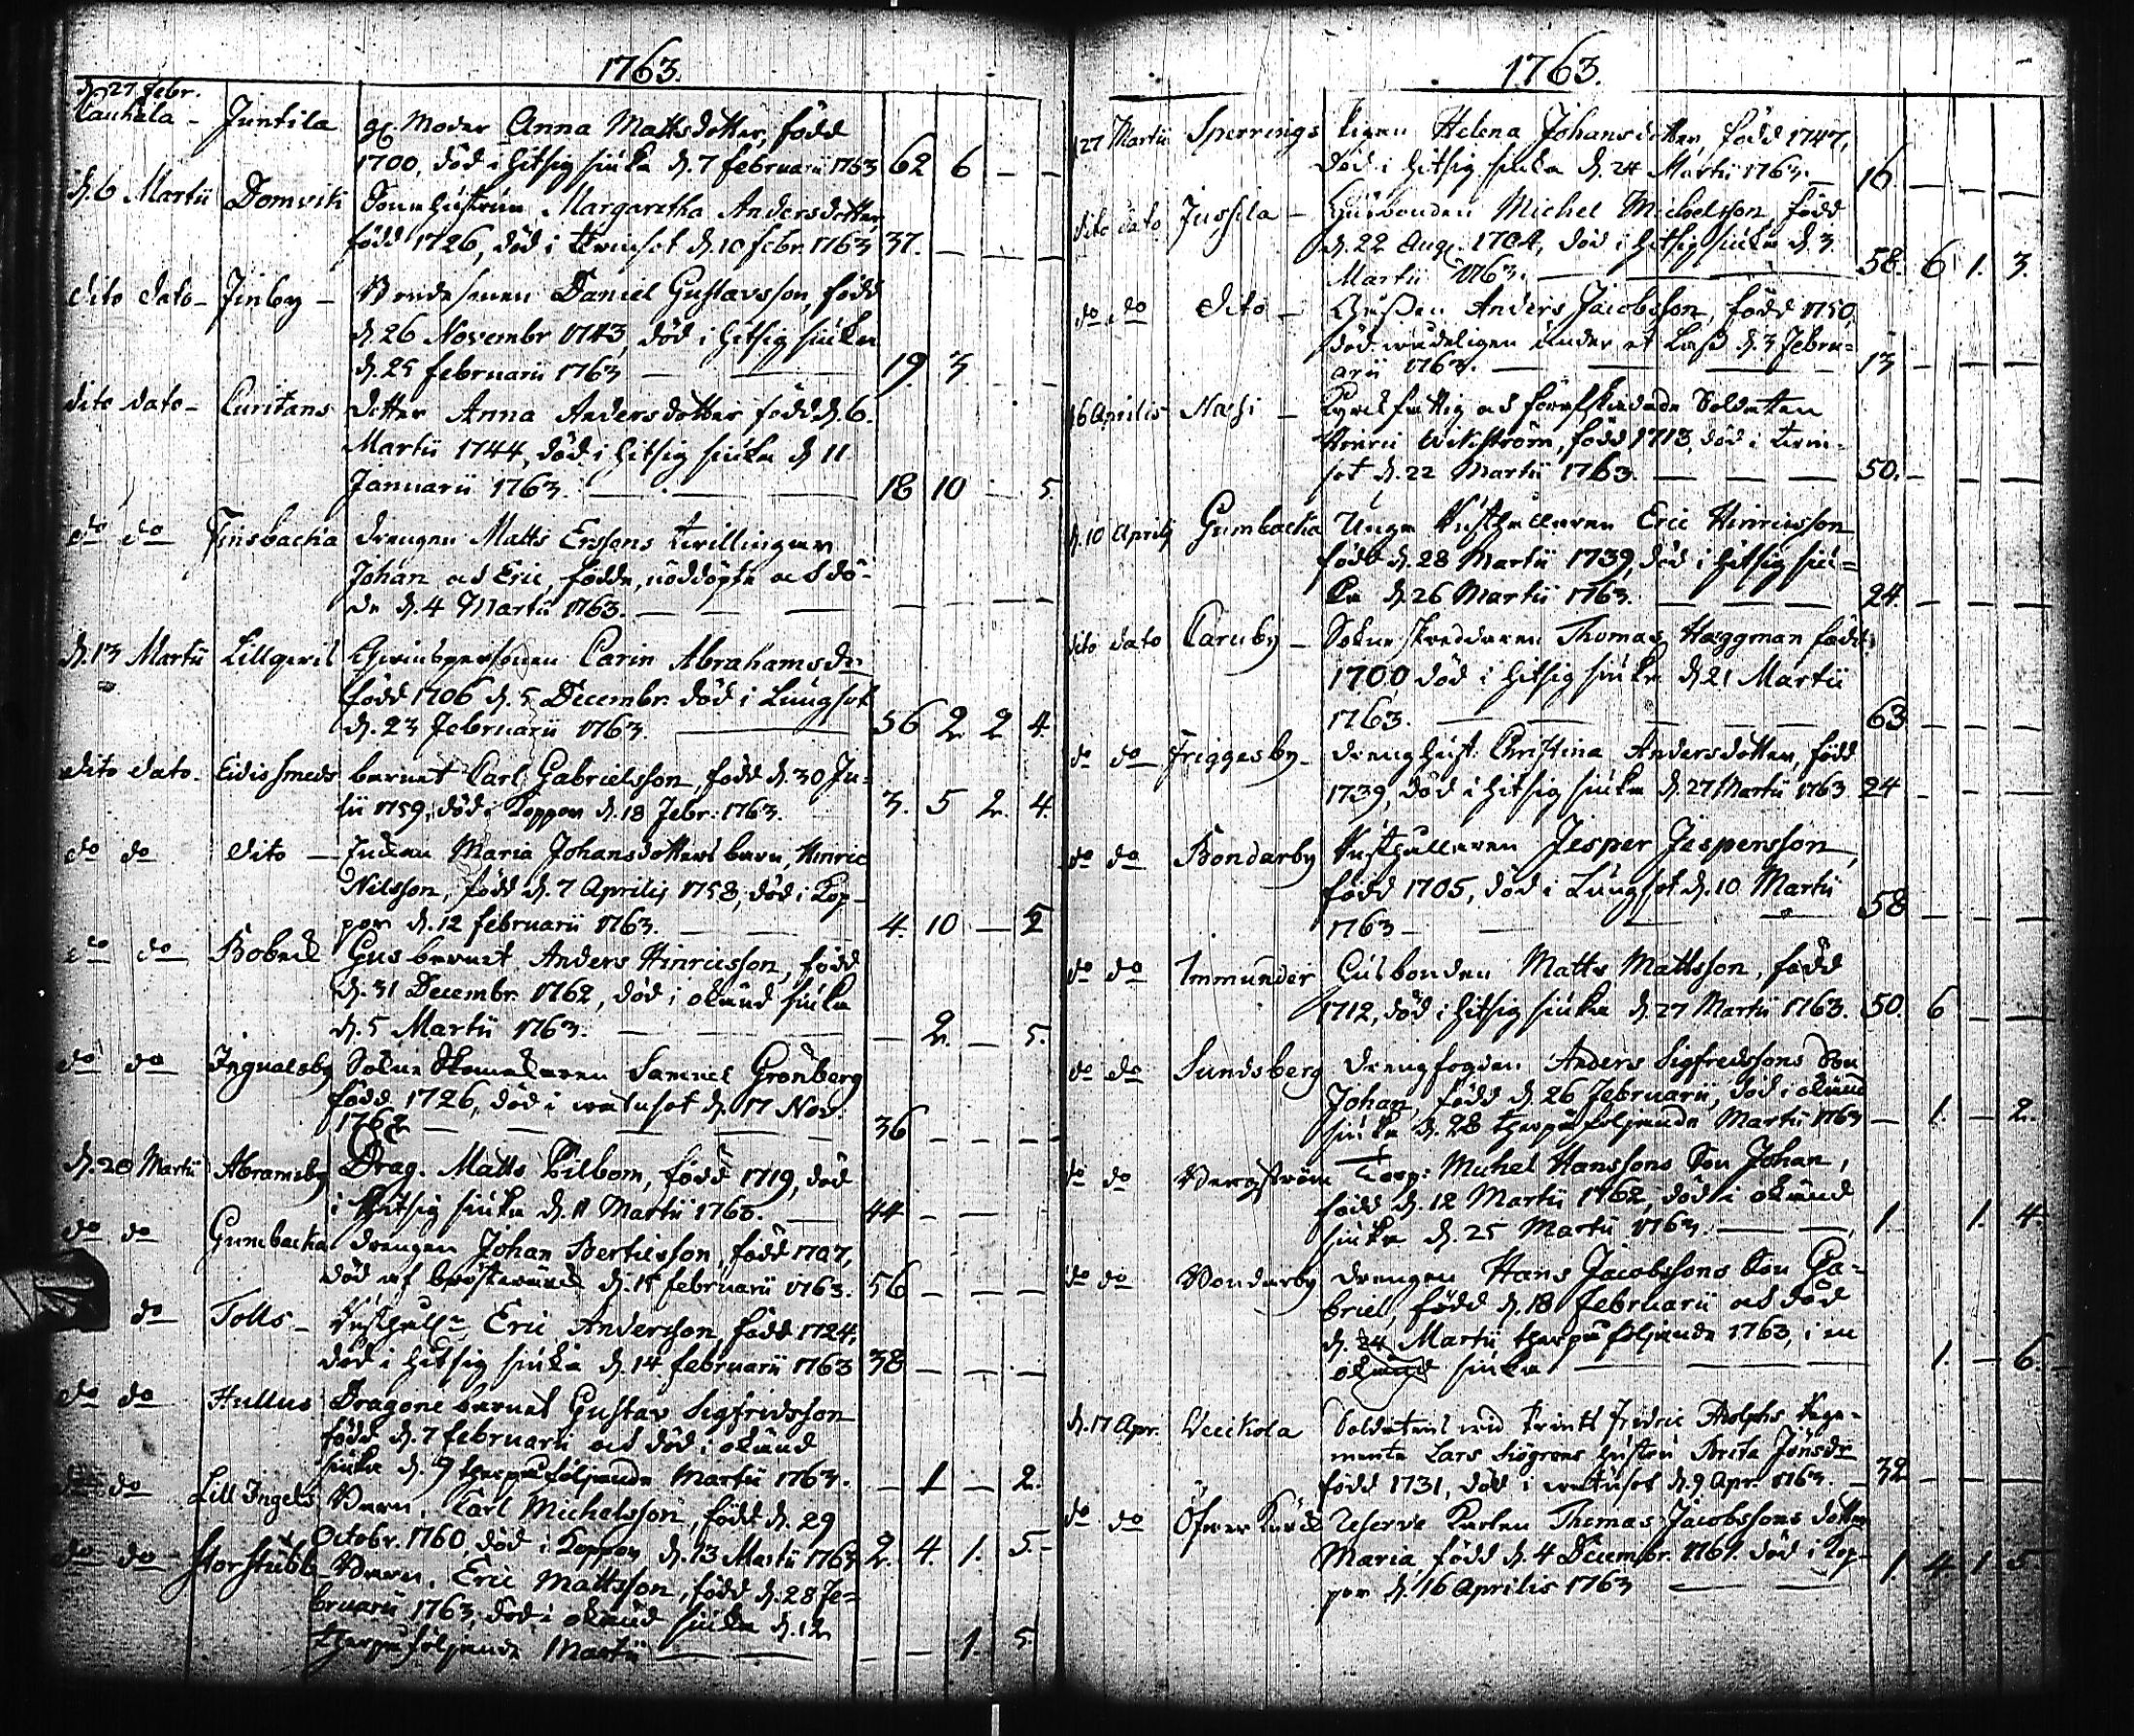 1763.
d. 27 Febr.
Lauhala - Juntila gl. Moder Anna Mattsdotter, född
1700, död i hitsig siuka d. 7 Februarii 1763 62 6 - -
d. 6 Martii Domviti Hustrun Margaretha Andersdotter,
född 1726, död i Twinsot d. 10 Febr. 1763 37. - - -
dito dato - Finby - Bondesonen Daniel Gustavsson, född
d. 26 Novembr 1743, död i hitsig siuka
d. 25 Februarii 1763 19. 3. -
dito dato - Curitans dotter Anna Andersdotter född d. 6.
Martii 1744, död i hitsig siuka d 11
Januarii 1763. 18 10 - 5.
do do Finsbacka drengen Matts Erssons twillingar
Johan och Eric, födde, nöddöpte och dö-
de d. 4 Martii 1763. - - - -
d. 13 Martii Lillgeril Carin Abrahamsdr
född 1706 d. 5 Decembr. död i Lungsot
d. 23 Februarii 1763. 56 2 2 4.
dito dato - Eidissmeds barnet Carl Gabrielsson, född d. 30 Ju-
lii 1759, död i Koppor d. 18 Febr: 1763. 3. 5 2. 4.
do do dito - Maria Johansdotters barn, Hinric
Nilsson, född d. 7 Aprilis 1758, död i Kop-
por d. 12 Februarii 1763. 4. 10 - 5
do do Bobeck Hus barnet Anders Hinricsson, född
d. 31 Decembr. 1762, död i okänd siuka
d. 5 Martii 1763. - 2. - 5.
do do Ingvalsby Sockne Skomakaren Samuel Grönberg
född 1726, död i watusot d. 17 Nov.
1762 36 - - -
d. 20 Martii Abramsby Drag. Matts Pilbom, född 1719, död
i hitsig siuka d. 11 Martii 1763. 44 - -
do do Gumbacka drengen Johan Bertilsson, född 1707,
död af d. 15 Februarii 1763. 56 - - -
do Tolls - Rusthåll:n Eric Andersson, född 1724,
död i hitsig siuka d. 14 Februarii 1763 38 - - -
do do Hullus Dragone barnet Gustav Sigfridsson
född d. 7 Februarii och död i okänd
siuka d. 9 therpåföljande Martii 1763. - 1 - 2.
do do Lill Ingels Barn. Carl Michelsson, född d. 29
Octobr. 1760, död i Koppor d. 13 Martii 1763 2. 4. 1. 5.
do do Storstubb - Barn. Eric Mattsson, född d. 28 Fe-
bruarii 1763, död i okänd siuka d. 12
therpåföljande Martii - - 1. 5.
1763.
d. 27 Martii Sperrings Pigan Helena Johansdotter, född 1747,
död i hitsig siuka d. 24 Martii 1763. 16 - - -
dito dato Jussila - Husbonden Michel Michelsson, född
d. 22 Aug. 1704, död i hitsig siuka d. 3
Martii 1763. 58. 6 1. 3.
do do dito - Anders Jacobsson, född 1750,
död wådeligen under et Lass d. 3 Febru-
arii 1763. 13 - - -
d. 6 Aprilis Nassi - Kyrkfattig och förafskedade Soldaten
Hinric Wikström, född 1713, död i twin-
sot d. 22 Martii 1763. 50. - - -
d. 10 Aprilis Gumbacka Unga Rusthållaren Eric Hinricsson
född d. 28 Martii 1739, död i hitsig siu-
ka d. 26 Martii 1763. 24. - - -
dito dato Caruby - Sokne skreddaren Thomas Haggman född
1700 död i hitsig siuka d. 21 Martii
1763. 63. - - -
do do Friggesby - drenghust. Christina Andersdotter, född
1739, död i hitsig siuka d. 27 Martii 1763 24 - - -
do do Bondarby Rusthållaren Jesper Jespersson,
född 1705, död i Lungsot d. 10 Martii
1763 - 58 - - -
do do Immunder Husbonden Matts Mattsson, född
1712, död i hitsig siuka d. 27 Martii 1763. 50. 6 - -
do do Sundsberg drengfogden Anders Sigfredssons Son
Johan, född d. 26 Februarii, död i okänd
siuka d. 28 therpåföljande Martii 1763 - 1. - 2.
do do Bergström Torp: Michel Hanssons Son Johan,
född d. 12 Martii 1762, död i okänd
siuka d. 25 Martii 1763. 1. 1. 4.
do do Bondarby drengen Hans Jacobssons Son Ga-
briel, född d. 18 Februarii och död
d. 24 Martii therpåföljande 1763, i en
okänd siuka 1. - 6.
d. 17 Apr. Veickola Soldatens wid Printz Fredric Adolphs Rege-
mente Lars Siögrens hustru Brita Jönsdr
född 1731, död i watusot d. 9 Apr. 1763. 32 - - -
do do Öfwer Kurck Reserve Karlen Thomas Jacobssons dotter
Maria, född d. 4 Decembr. 1761. död i Kop-
por d. 16 Aprilis 1763 1. 4. 1. 5.